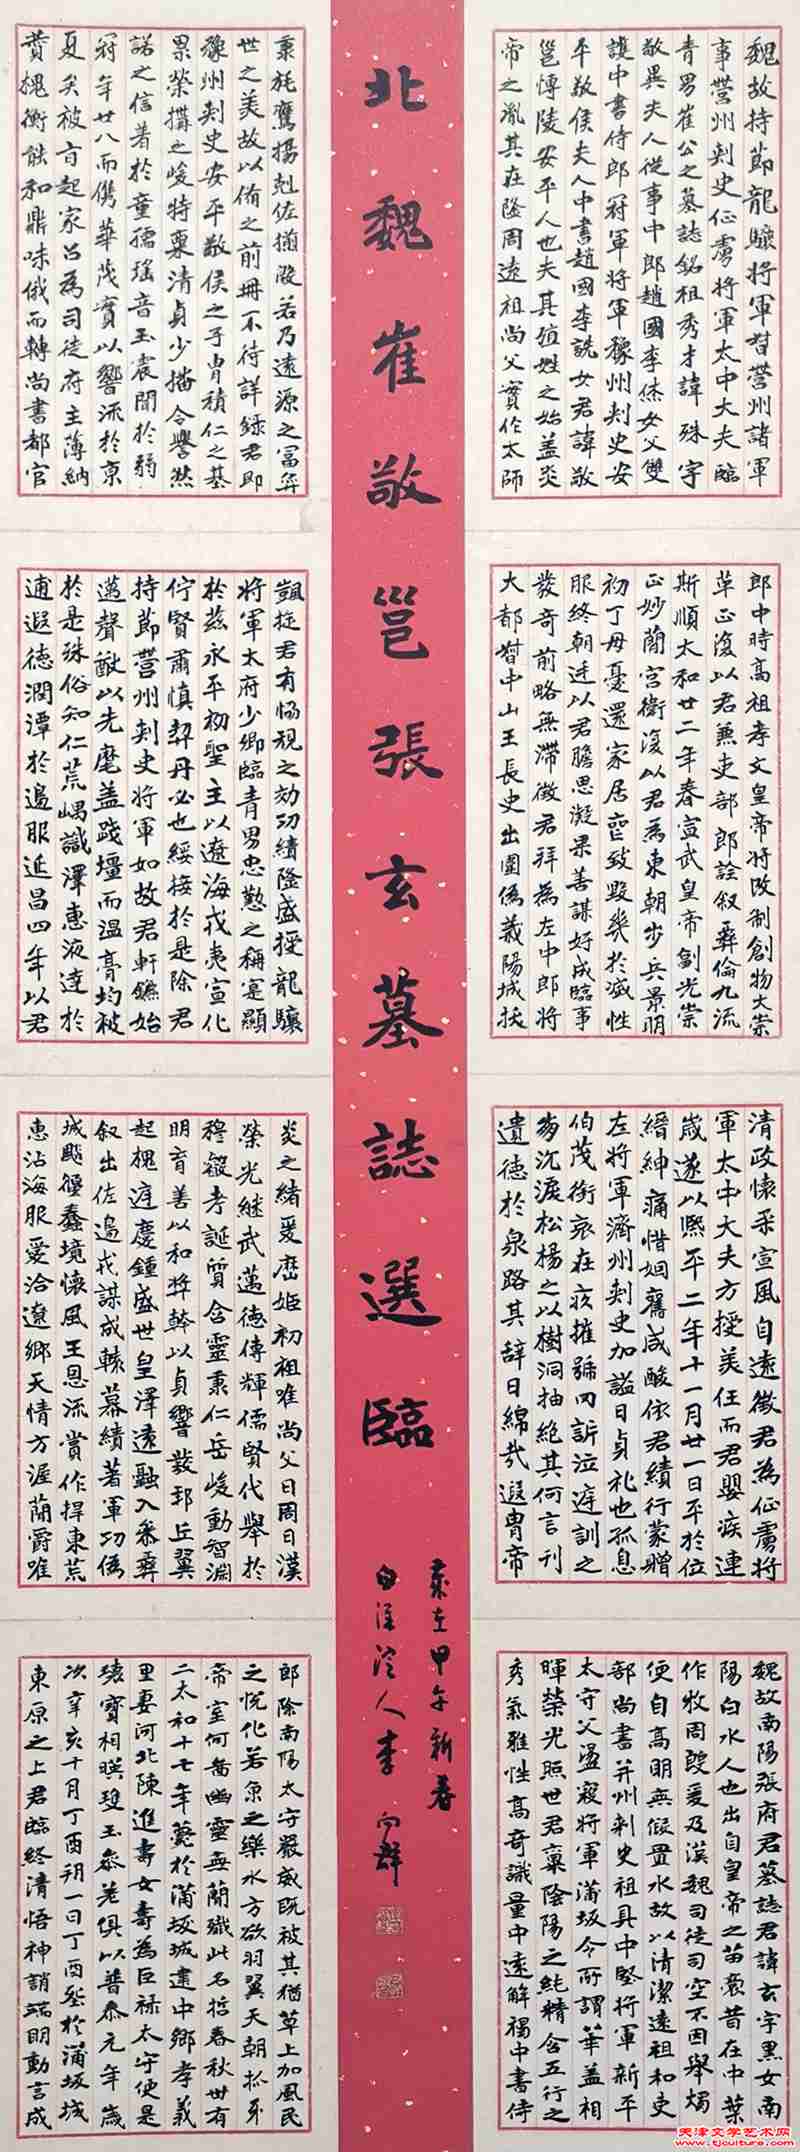 北魏崔敬邕張玄墓誌選臨
歲在甲午新春
白洋淀人李向群
魏故持節龍驤將軍督營州諸軍
事營州刺史征虜將軍太中大夫臨
青男崔公之墓誌銘祖秀才諱殊字
敬異夫人從事中郎趙國李烋女父雙
護中書侍郎冠軍將軍豫州刺史安
平敬侯夫人中書趙國李詵女君諱敬
邕愽陵安平人也夫其殖姓之始蓋炎
帝之胤其在隆周遠祖尚父實作太師
秉旄鷹揚剋佐揃殷若乃遠源之富弈
世之美故以俻之前冊不待詳錄君即
豫州刺史安平敬侯之子胄積仁之基
累榮搆之峻特稟清貞少播令譽然
諾之信著於童孺瑤音玉震聞於弱
冠年廿八而儁華茂實以響流於京
夏矣被旨起家召為司徒府主薄納
贊槐衡能和鼎味俄而轉尚書都官
郎中時高祖孝文皇帝將改制創物大崇
革正復以君兼吏部郎詮叙彝倫九流
斯順太和廿二年春宣武皇帝副光崇
正妙簡宮衛復以君為東朝步兵景明
初丁母憂還家居喪致毀幾於滅性
服終朝廷以君膽思凝果善謀好成臨事
發奇前略無滯徵君拜為左中郎將
大都督中山王長史出圍偽義陽城拔
凱旋君有協規之効功績隆盛授龍驤
將軍太府少卿臨青男忠懃之稱寔顯
於茲永平初聖主以遼海戎夷宣化
佇賢肅慎契丹必也綏接於是除君
持節營州刺史將軍如故君軒鑣始
邁聲猷以先麾蓋踐壇而溫膏均被
於是殊俗知仁荒嵎識澤惠液達於
逋遐德潤潭於邊服延昌四年以君
清政懷柔宣風自遠徵君為征虜將
軍太中大夫方授美任而君嬰疾連
歲遂以熙平二年十一月廿一日卒於位
縉紳痛惜姻舊咸酸依君績行蒙贈
左將軍濟州刺史加謚曰貞礼也孤息
伯茂銜哀在疚摧號罔訴泣庭訓之
崩沉淚松楊之以樹洞抽絕其何言刊
遺德於泉路其辞曰綿哉遐胄帝
炎之緒爰歷姬初祖唯尚父曰周曰漢
榮光継武邁德傳輝儒賢代舉於
穆叡考誕質含靈秉仁岳峻動智淵
明育善以和獎幹以貞響發邽丘翼
起槐庭慶鍾盛世皇澤遠融入參彝
叙出佐邊戎謀成轅幕績著軍功偽
城飈偃蠢境懷風王恩流賞作捍東荒
惠沾海服愛洽遼鄉天情方渥蘭爵唯
魏故南陽張府君墓誌君諱玄字黑女南
陽白水人也出自皇帝之苗裔昔在中葉
作牧周殷爰及漢魏司徒司空不因舉燭
便自高明無假置水故以清潔遠祖和吏
部尚書并州刺史祖具中堅將軍新平
太守父盪寇將軍蒲坂令所謂華蓋相
暉榮光照世君稟陰陽之純精含五行之
秀氣雅性高奇識量中遠解褐中書侍
郎除南陽太守嚴威既被其猶草上加風民
之悅化若魚之樂水方欲羽翼天朝抓牙
帝室何啚幽靈無蘭殲此名哲春秋卅有
二太和十七年薨於蒲坂城建中鄉孝義
里妻河北陳進壽女壽為巨祿太守便是
瓌寶相暎雙玉參差俱以普泰元年歲
次辛亥十月丁酉朔一日丁酉葬於蒲坂城
東原之上君臨終清悟神誚端明動言成
天津文学艺术网
www.tjculture.com